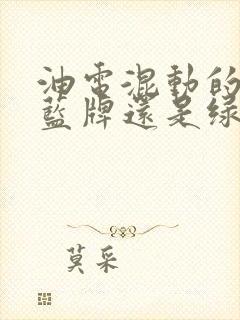 油電混動的
藍牌還是綠
莫采